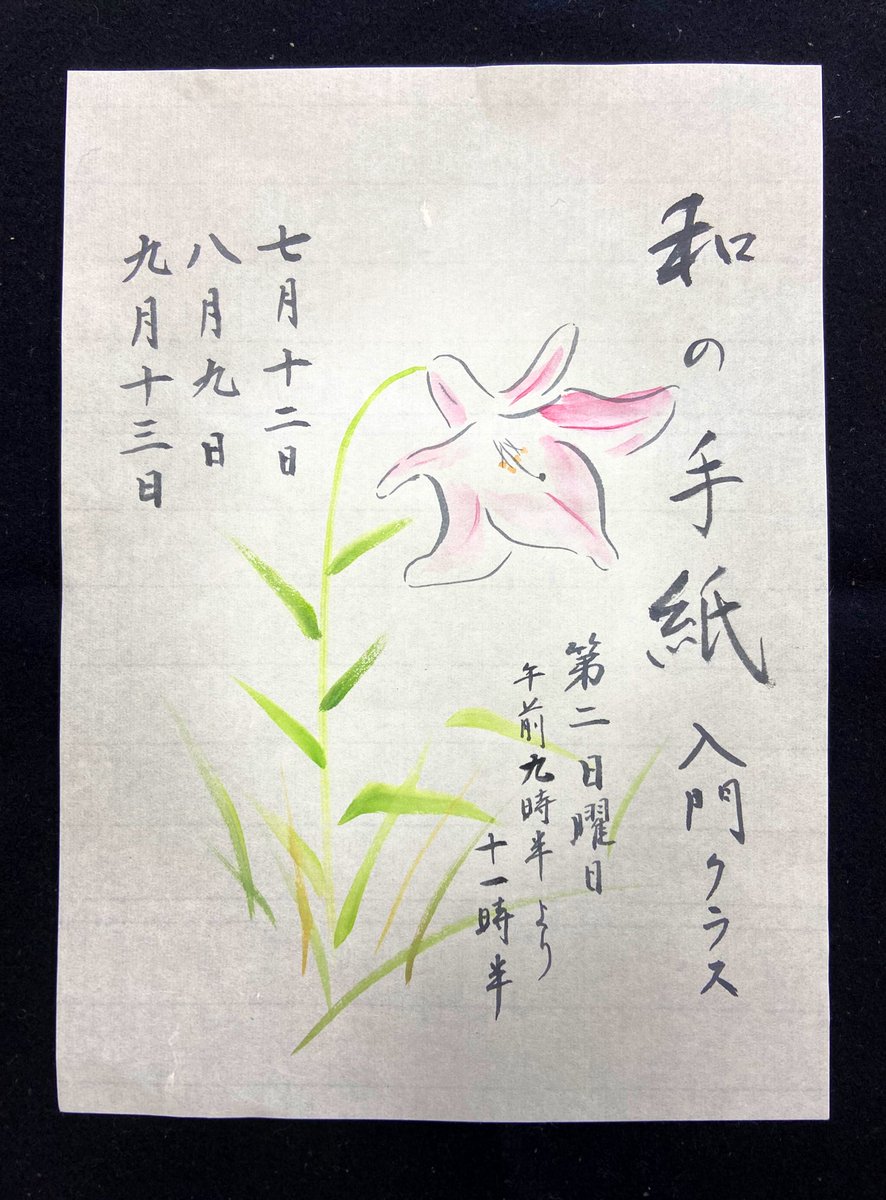 和の手紙 入門クラス
第二日曜日
午前九時半より
十一時半
七月十二日
八月九日
九月十三日